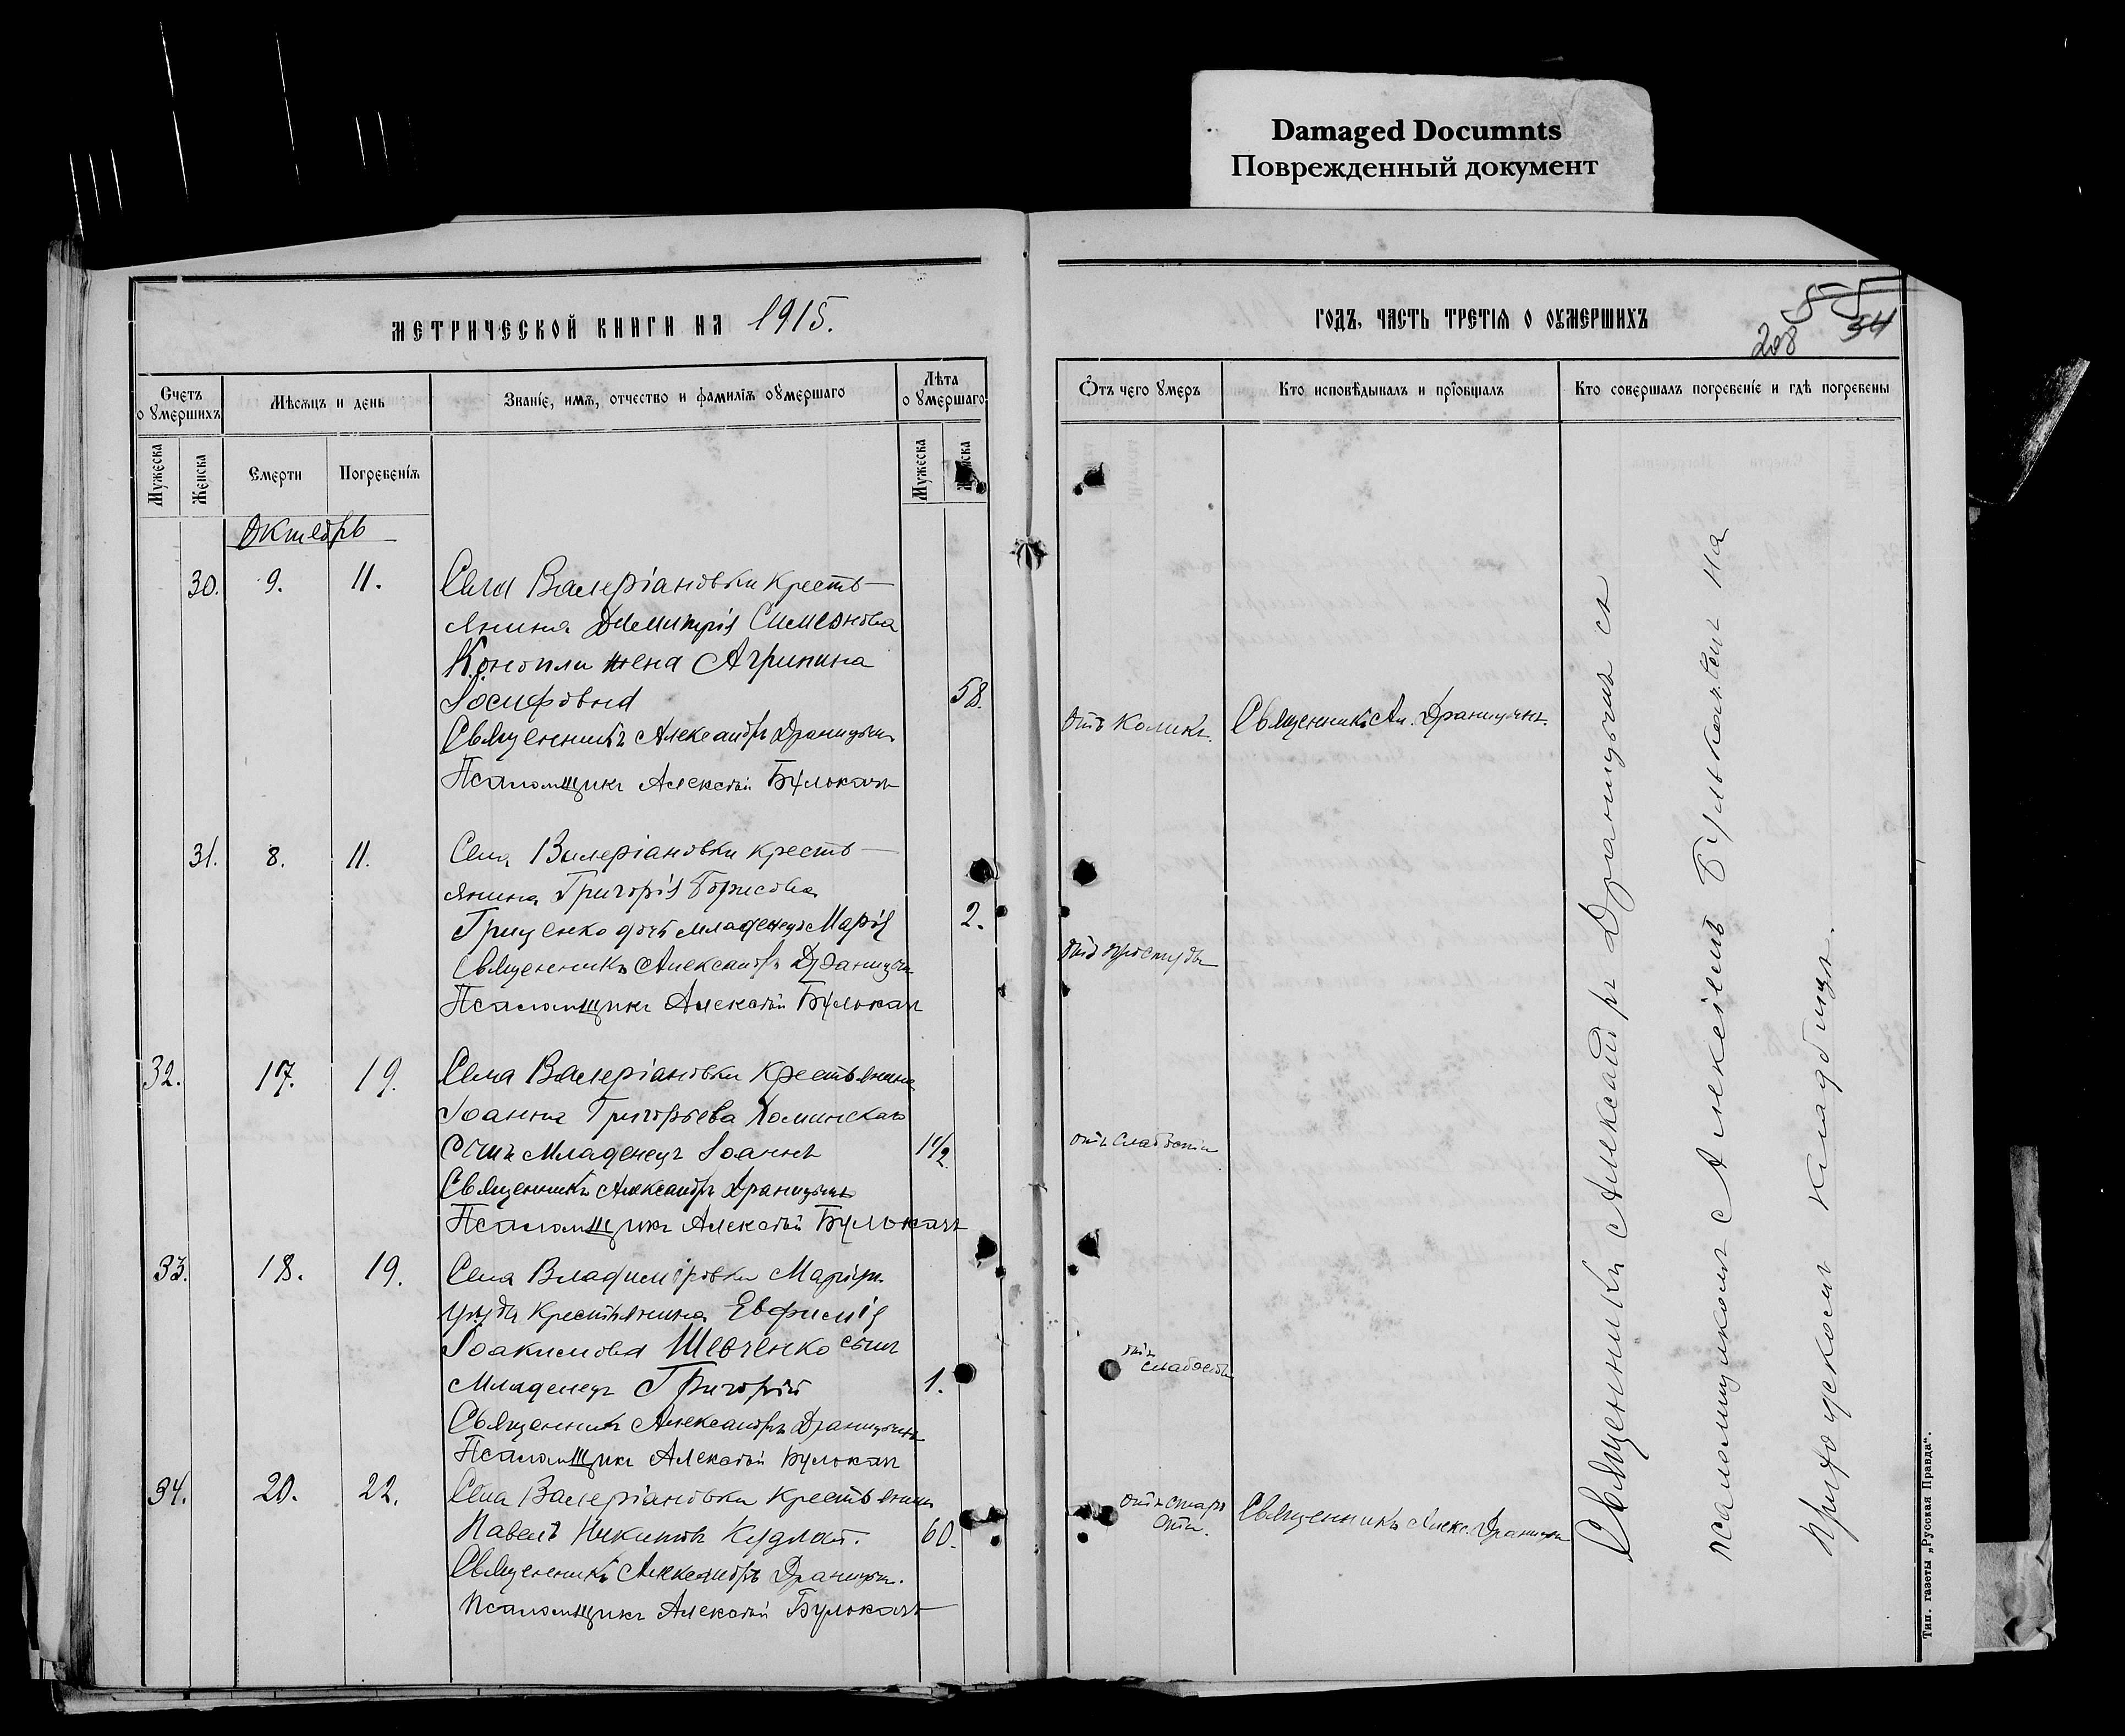 Damaged Documnts
Поврежденный документ
МЕТРИЧЕСКОЙ КНИГИ НА 1915.
ГОДЪ, ЧАСТЬ ТРЕТІЯ О ОУМЕРШИХЪ
208 55 34
Счетъ о умершихъ
Мѣсяцъ и день
Званіе, имя, отчество и фамилія оумершаго
Лѣта оумершаго
Отъ чего умеръ
Кто исповѣдывалъ и пріобщалъ
Кто совершалъ погребеніе и гдѣ погребены
Мужеска
Женска
Смерти
Погребенія
Мужеска
Женска
Октябрь
30. 9. 11. Села Валеріановки кресть-
янина Димитрія Симеонова
Конопли жена Агрипина
Іосифовна 58.
отъ коликъ. Священникъ Ал. Драницынъ.
Священникъ Александръ Драницынъ
Псаломщикъ Алексѣй Булькачъ
31. 8. 11. Села Валеріановки кресть-
янина Григорія Борисова
Гриценко дочь младенецъ Марія 2.
отъ простуды
Священникъ Александръ Драницынъ
Псаломщикъ Алексѣй Булькачъ
32. 17. 19. Села Валеріановки крестьянина
Іоанна Григорьева
сынъ младенецъ Іоаннъ 1 1/2
отъ
Священникъ Александръ Драницынъ
Псаломщикъ Алексѣй Булькачъ
33. 18. 19. Села Владиміровки Маріуп.
уѣзда крестьянина Евфимія
Іоакимова Шевченко сынъ
младенецъ Григорій 1.
отъ слабости
Священникъ Александръ Драницынъ
Псаломщикъ Алексѣй Булькачъ
34. 20. 22. Села Валеріановки крестьянинъ
Павелъ Никитинъ 60.
отъ старо
сти. Священникъ Алекс. Драницынъ
Священникъ Александръ Драницынъ.
Псаломщикъ Алексѣй Булькачъ
Священникъ Александръ Драницынъ съ
псаломщикомъ Алексіемъ Булькачемъ на
приходскомъ кладбищѣ.
Тип. газеты „Русская Правда“.